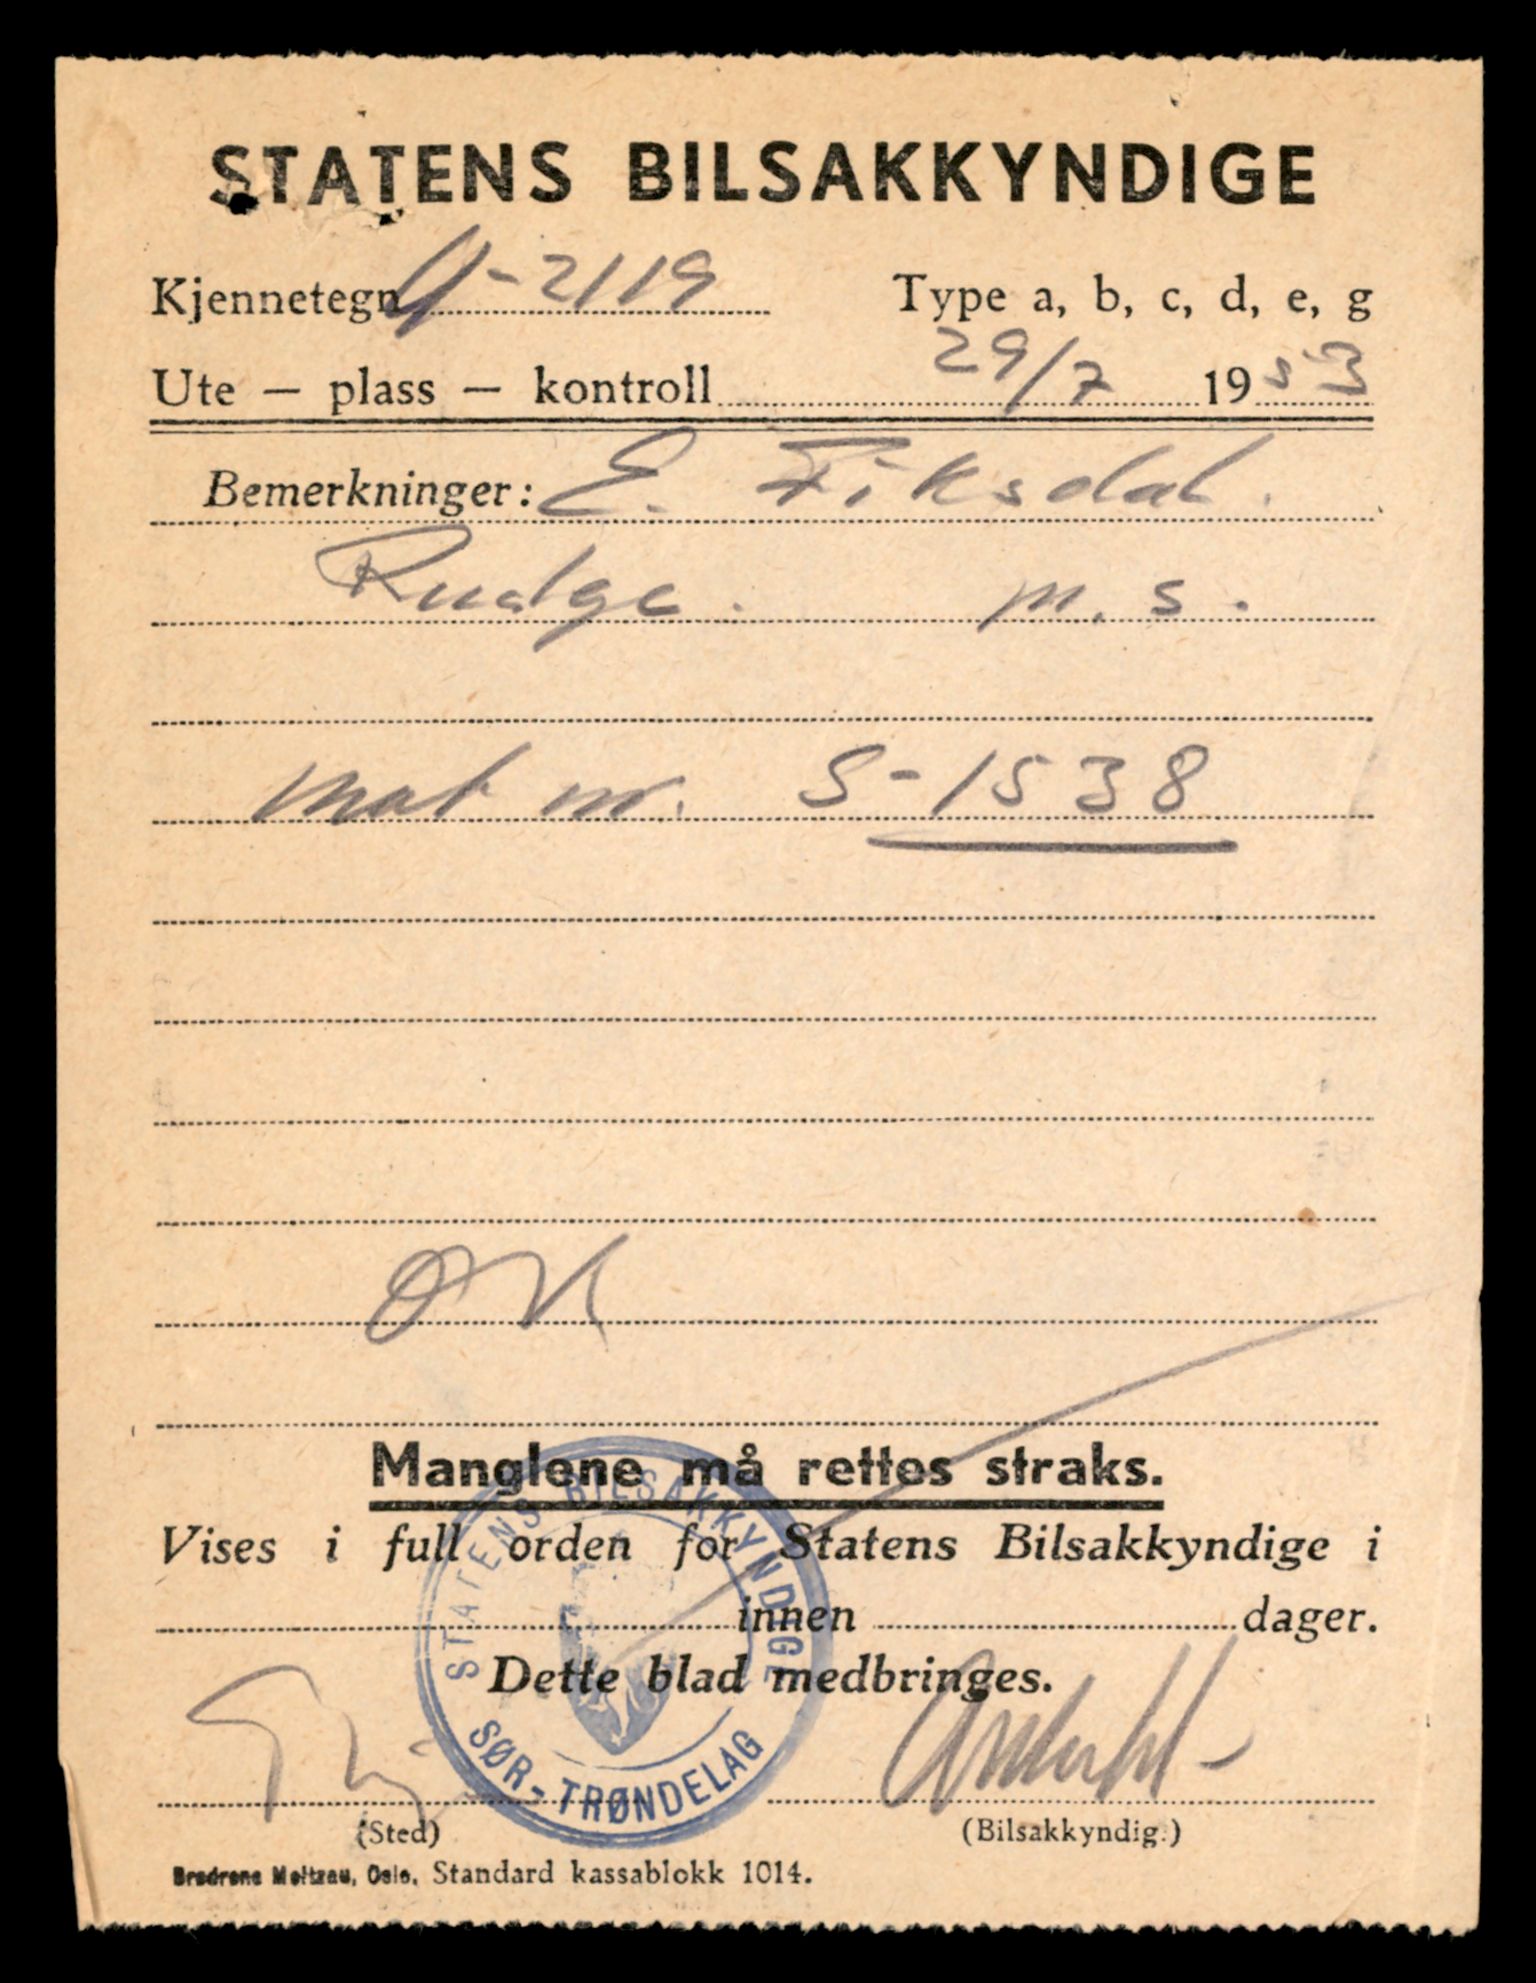 STATENS BILSAKKYNDIGE
Kjennetegn U-2119 Type a, b, c, d, e, g
Ute — plass — kontroll 29/7 1953
Bemerkninger: E. Fiksdal.
Rudge. m.s.
Mot nr. S-1538
OK
Manglene må rettes straks.
Vises i full orden for Statens Bilsakkyndige i
innen dager.
Dette blad medbringes.
STATENS BILSAKKYNDIGE
SØR-TRØNDELAG
(Sted) (Bilsakkyndig.)
Brødrene Meltzau, Oslo. Standard kassablokk 1014.